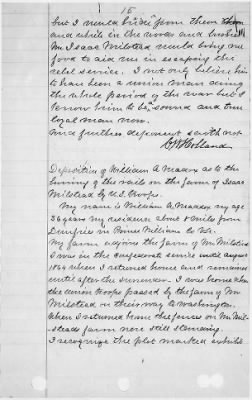 15
but I would hide from them
and while in the woods and bushes
Mr Isaac Milstead would bring me
food to aid me in escaping the
rebel service. I not only believe him
to have been a union man during
the whole period of the war but I
know him to be a sound and true
loyal man now.
And further deponent saith not
Holland
Deposition of William A. Maddox as to the
burning of the rails on the farm of Isaac
Milstead by U.S. Troops
My name is William A. Maddox my age
36 years my residence about 4 miles from
Dumfries in Prince William Co Va.
My farm adjoins the farm of Mr Milstead
I was in the Confederate service until august
1864 when I returned home and remained
until after the surrender. I was home when
the union troops passed by the farm of Mr
Milstead on their way to Washington.
When I returned home the fences on Mr Mil-
steads farm were still standing.
I recognize the plot marked exhibit